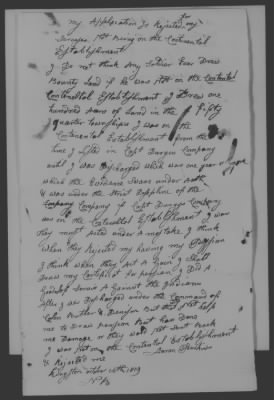 my Application Is Rejected for my
Service Not Being on the Continental
Establishment
I Do not think Any Soldier Ever Drew
Bounty Land if he was Not on the Continental
Continental Establishment I Drew one
hundred Acres of Land in the fifty
quarter township I was on the
Continental Establishment from the
time I Listed in Capt Company
until I was Discharged which was one year &
which the Evidence Swore under oath
I was under the Strict Dysipline of the
Company Company if Capt Company
was on the Continental Establishment I was
they must Acted under A mistake I think
When they Rejected my having my Pension
I think when they Act A Gain I Shall
Draw my Certificit for pension I Did A
good Service A Gainst the Indians
After I was Discharged under the Command of
Colon Butler & But that Not help
me to Draw pension But has Done
me Damage or they was Not Sent Back
I was Not on the Continental Establishment
& Rejected me
Kingston 10th 1819